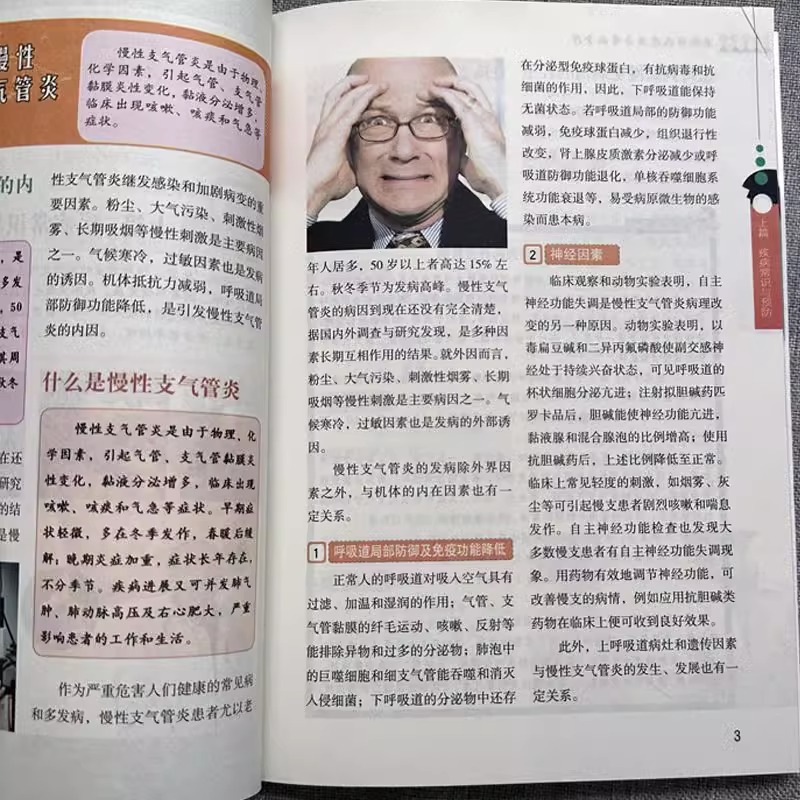 慢性
气管炎
慢性支气管炎是由于物理、
化学因素,引起气管、支气管
黏膜炎性变化,黏液分泌增多,
临床出现咳嗽、咳痰和气急等
症状。
的内
性支气管炎继发感染和加剧病变的重
要因素。粉尘、大气污染、刺激性烟
雾、长期吸烟等慢性刺激是主要病因
之一。气候寒冷,过敏因素也是发病
的诱因。机体抵抗力减弱,呼吸道局
部防御功能降低,是引发慢性支气管
炎的内因。
什么是慢性支气管炎
慢性支气管炎是由于物理、化
学因素,引起气管、支气管黏膜炎
性变化,黏液分泌增多,临床出现
咳嗽、咳痰和气急等症状。早期症
状轻微,多在冬季发作,春暖后缓
解;晚期炎症加重,症状长年存在,
不分季节。疾病进展又可并发肺气
肿、肺动脉高压及右心肥大,严重
影响患者的工作和生活。
作为严重危害人们健康的常见病
和多发病,慢性支气管炎患者尤以老
年人居多,50岁以上者高达15%左
右。秋冬季节为发病高峰。慢性支气
管炎的病因到现在还没有完全清楚,
据国内外调查与研究发现,是多种因
素长期互相作用的结果。就外因而言,
粉尘、大气污染、刺激性烟雾、长期
吸烟等慢性刺激是主要病因之一。气
候寒冷,过敏因素也是发病的外部诱
因。
慢性支气管炎的发病除外界因
素之外,与机体的内在因素也有一
定关系。
1 呼吸道局部防御及免疫功能降低
正常人的呼吸道对吸入空气具有
过滤、加温和湿润的作用;气管、支
气管黏膜的纤毛运动、咳嗽、反射等
能排除异物和过多的分泌物;肺泡中
的巨噬细胞和细支气管能吞噬和消灭
入侵细菌;下呼吸道的分泌物中还存
在分泌型免疫球蛋白,有抗病毒和抗
细菌的作用,因此,下呼吸道能保持
无菌状态。若呼吸道局部的防御功能
减弱,免疫球蛋白减少,组织退行性
改变,肾上腺皮质激素分泌减少或呼
吸道防御功能退化,单核吞噬细胞系
统功能衰退等,易受病原微生物的感
染而患本病。
2 神经因素
临床观察和动物实验表明,自主
神经功能失调是慢性支气管炎病理改
变的另一种原因。动物实验表明,以
毒扁豆碱和二异丙氟磷酸使副交感神
经处于持续兴奋状态,可见呼吸道的
杯状细胞分泌亢进;注射拟胆碱药匹
罗卡品后,胆碱能使神经功能亢进,
黏液腺和混合腺泡的比例增高;使用
抗胆碱药后,上述比例降低至正常。
临床上常见轻度的刺激,如烟雾、灰
尘等可引起慢支患者剧烈咳嗽和喘息
发作。自主神经功能检查也发现大
多数慢支患者有自主神经功能失调现
象。用药物有效地调节神经功能,可
改善慢支的病情,例如应用抗胆碱类
药物在临床上便可收到良好效果。
此外,上呼吸道病灶和遗传因素
与慢性支气管炎的发生、发展也有一
定关系。
上篇 疾病常识与预防
3